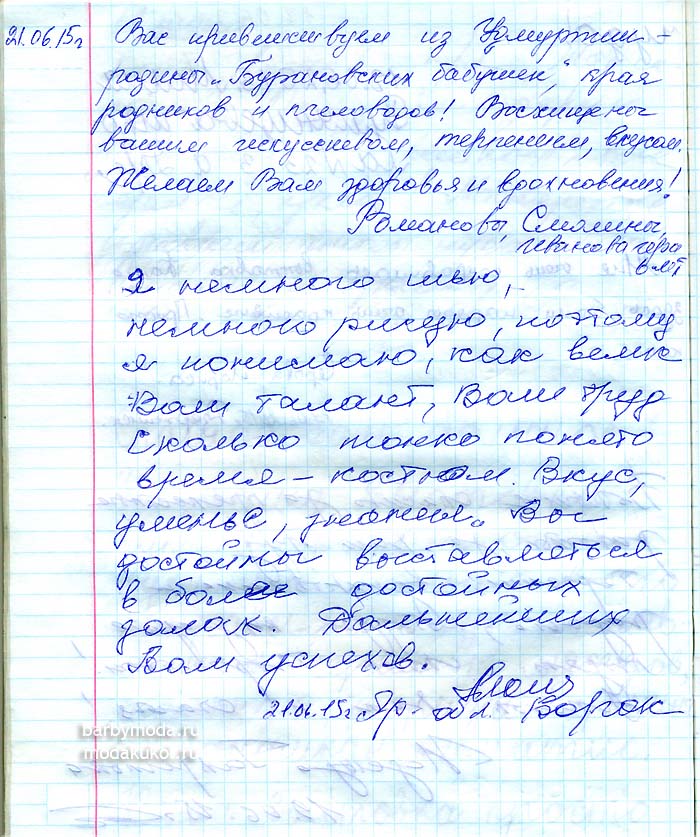 21.06.15г
Вас приветствуем из Удмуртии -
родины "Бурановских бабушек", края
родников и пчеловодов! Восхищены
вашим искусством, терпением, вкусом.
Желаем Вам здоровья и вдохновения!
Романовы, Смолины,
Иванова
Я немного шью,
немного рисую, поэтому
я понимаю, как велик
Ваш талант, Ваш труд
Сколько тонко понято
время - костюм. Вкус,
уменье, знания. Вы
достойны выставляться
в более достойных
залах. Дальнейших
Вам успехов.
21.06.15г Яр. обл. Борок
barbymoda.ru
modakukol.ru